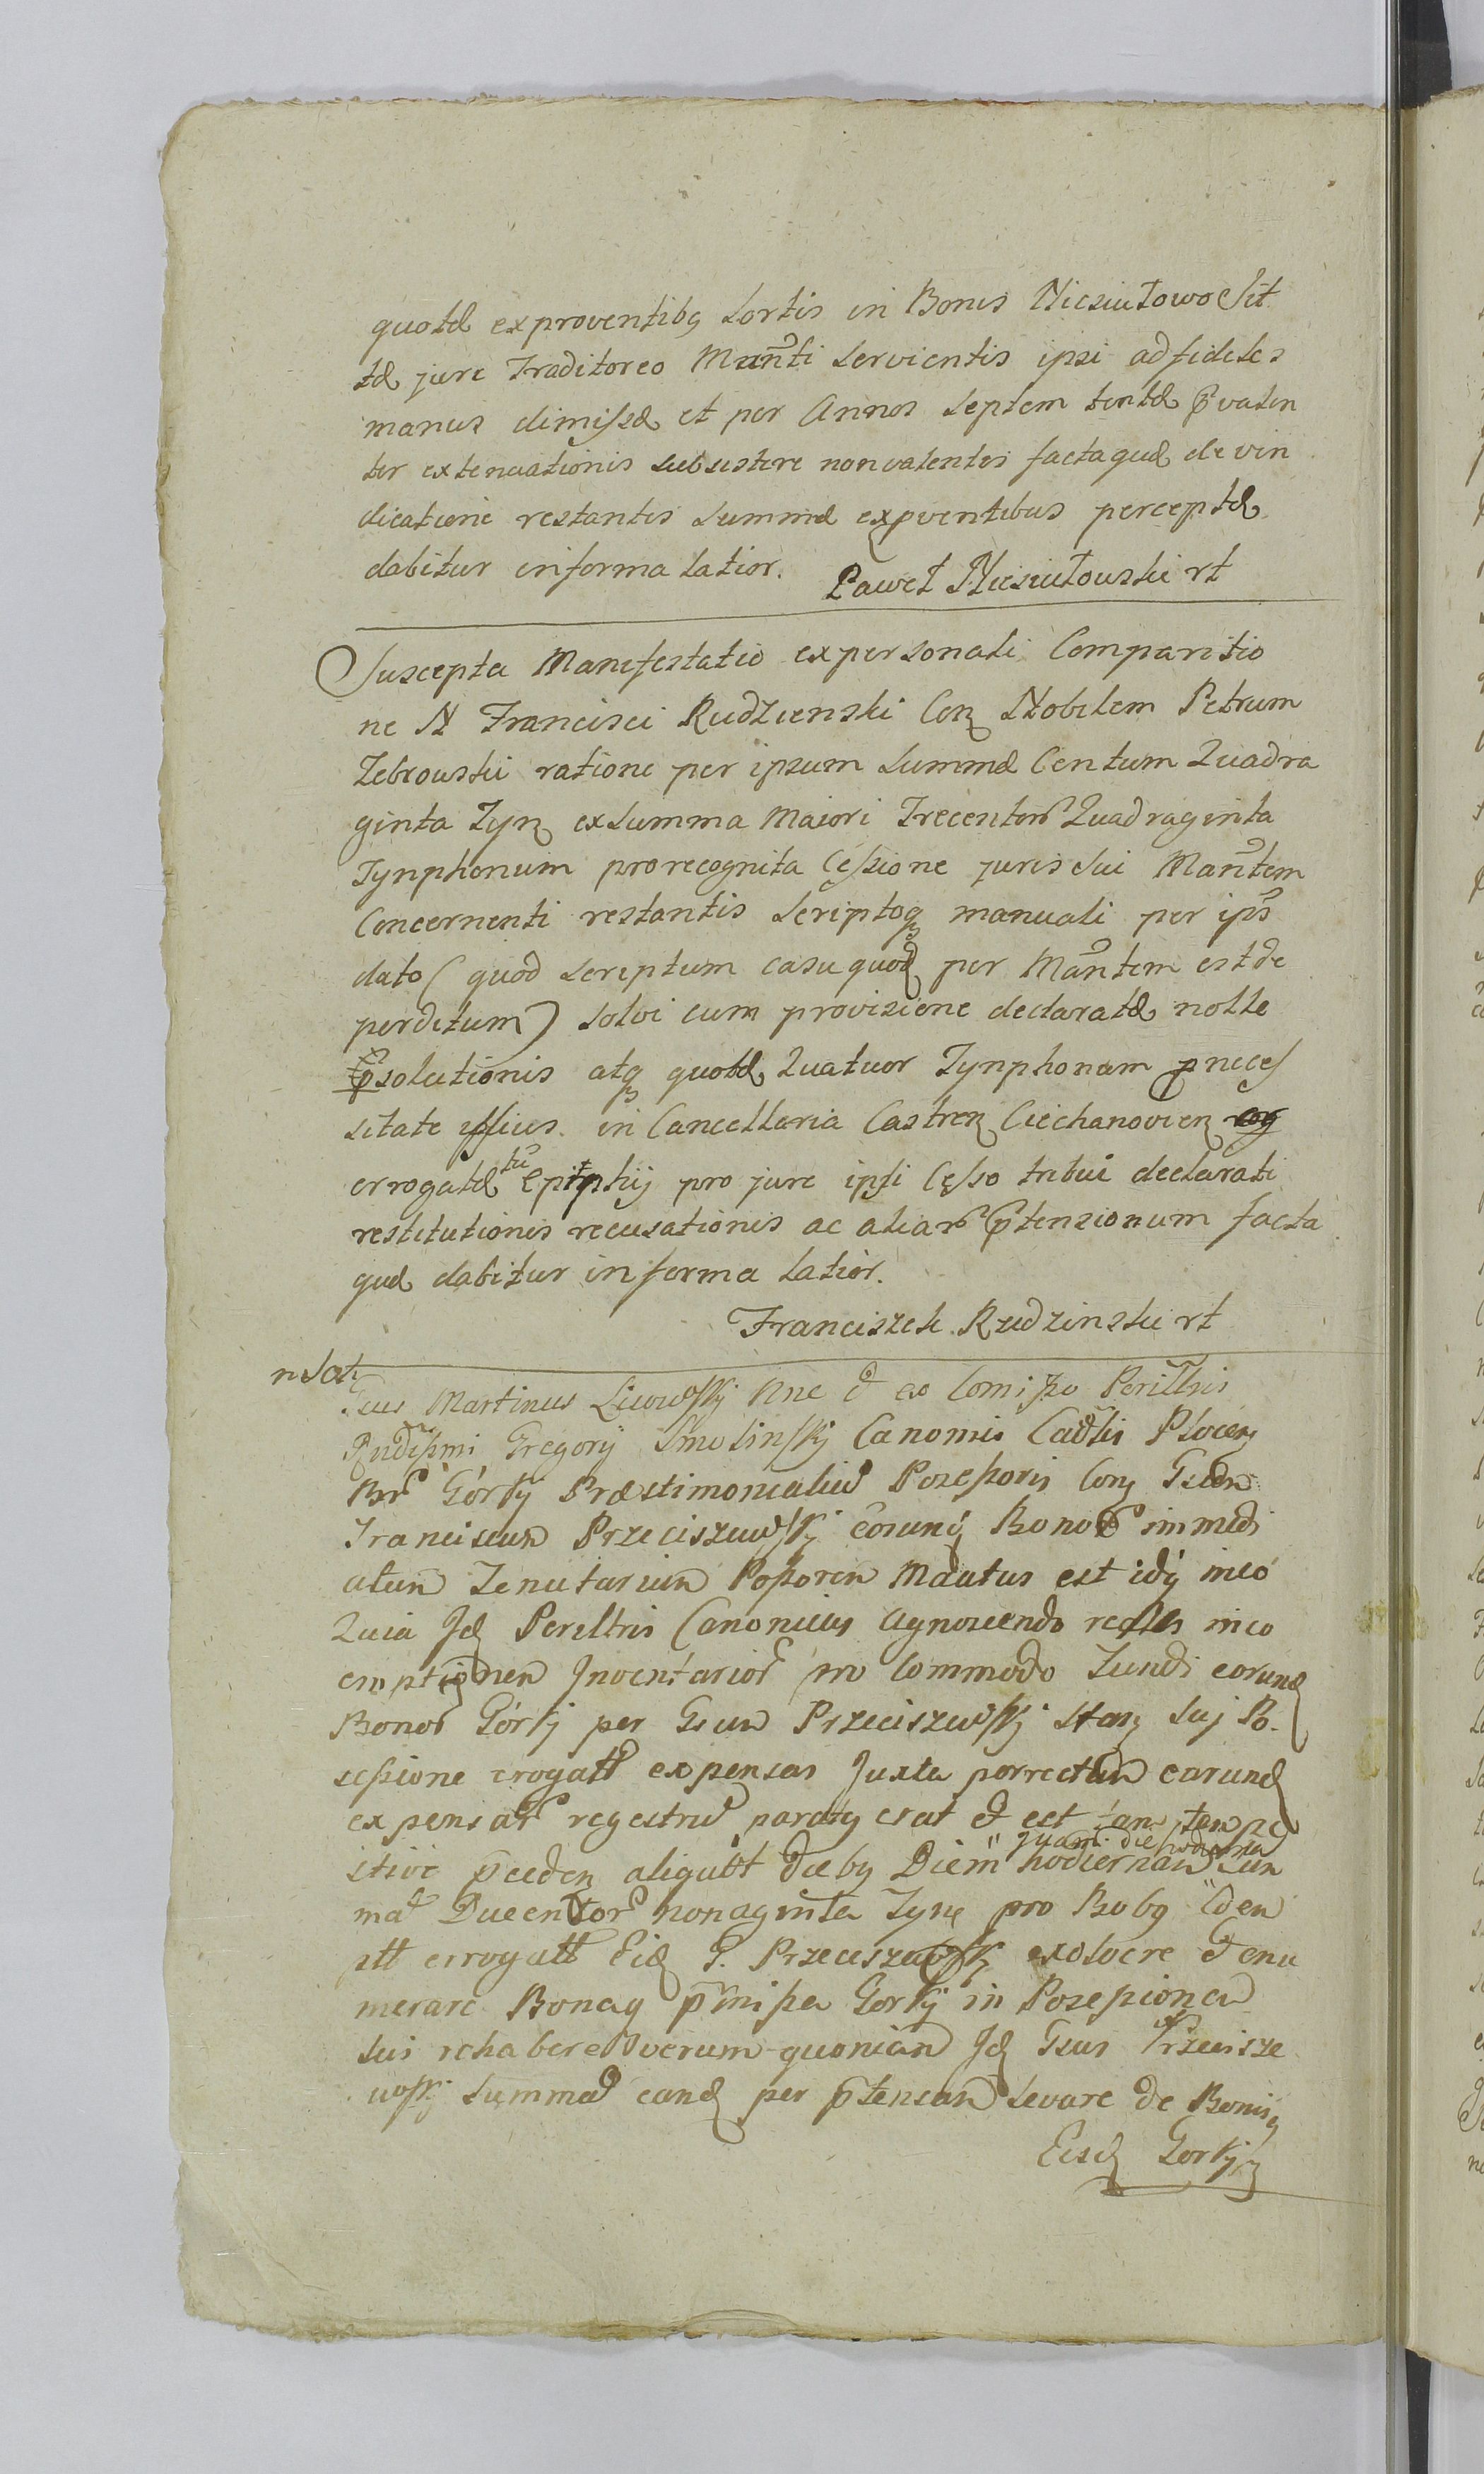 quotæ ex proventibq Sortis in Bonis Niesiułowo Sit
tæ jure Traditoreo Mann̄ti servientis ipsi ad fideles
manus dimissæ et per Annos Septem tentæ p̄valen
ter extenuationis subsistere non valentis factaquæ de vin
dicatione restantis Summæ ex pventibus perceptæ
dabitur in forma latior. Paweł Niesiułowski rt
Suscepta Manifestatio ex personali Comparitio
ne N Francisci Rudzienski Con Nobilem Petrum
Zebrowski ratione per ipsum Summæ Centum Quadra
ginta Tyn ex Summa Maiori Trecentor Quadraginta
Tynphonum pro recognita Cessione juris Sui Man̄tem
Concernenti restantis Scriptoq manuali per ips̄
dato (quod Scriptum casu quod per Man̄tem est de
perditum) Solvi cum provisione declaratæ nolle
p̄solutionis atq quotæ Quatuor Tynphonum p neces
sitate ipsius in Cancellaria Castren Ciechanovien
errogatæ tū pro jure ipsi Cesso tribui declarati
restitutionis recusationis ac aliar p̄tensionum facta
quæ dabitur in forma latior.
Franciszek Rudzinski rt
Martinus Perilltris
Rndissmi Gregorij Smolinskij Canonis Cadlis Plocen
Br Górkij Præstimonialiu Possessoris Con Gsum
Franciscum Przeciszewskij eorunq Bonor immedi
atum Tenutarium Possoren Mdatus est idq in eo
Quia Jd Perilltris Canonicus agnoscendo reales in eo
emptionen Inventarior pro Commodo Fundi eorund
Bonor Górkij per Gsum Przeciszewskij stan Suj Po-
sessione erogatt expensas Juxta porrectum earund
expensar regestru paratq erat et est tam tempe
quam die hodierna
stive p̄ceden aliqutt diebq Diem hodiernam Sum
ma Ducentor nonaginta Tyn pro Bobq iden
ptt errogatt Eid G. Przeciszewskij exolvere et enu
merare Bonaq p̄missa Gorkij in Possessionem
Sui rehabere verum quoniam Jd Gsus Przecisze
wskj Summam eand per p̄tensam levare de Bonisq
Eisd Gorkij